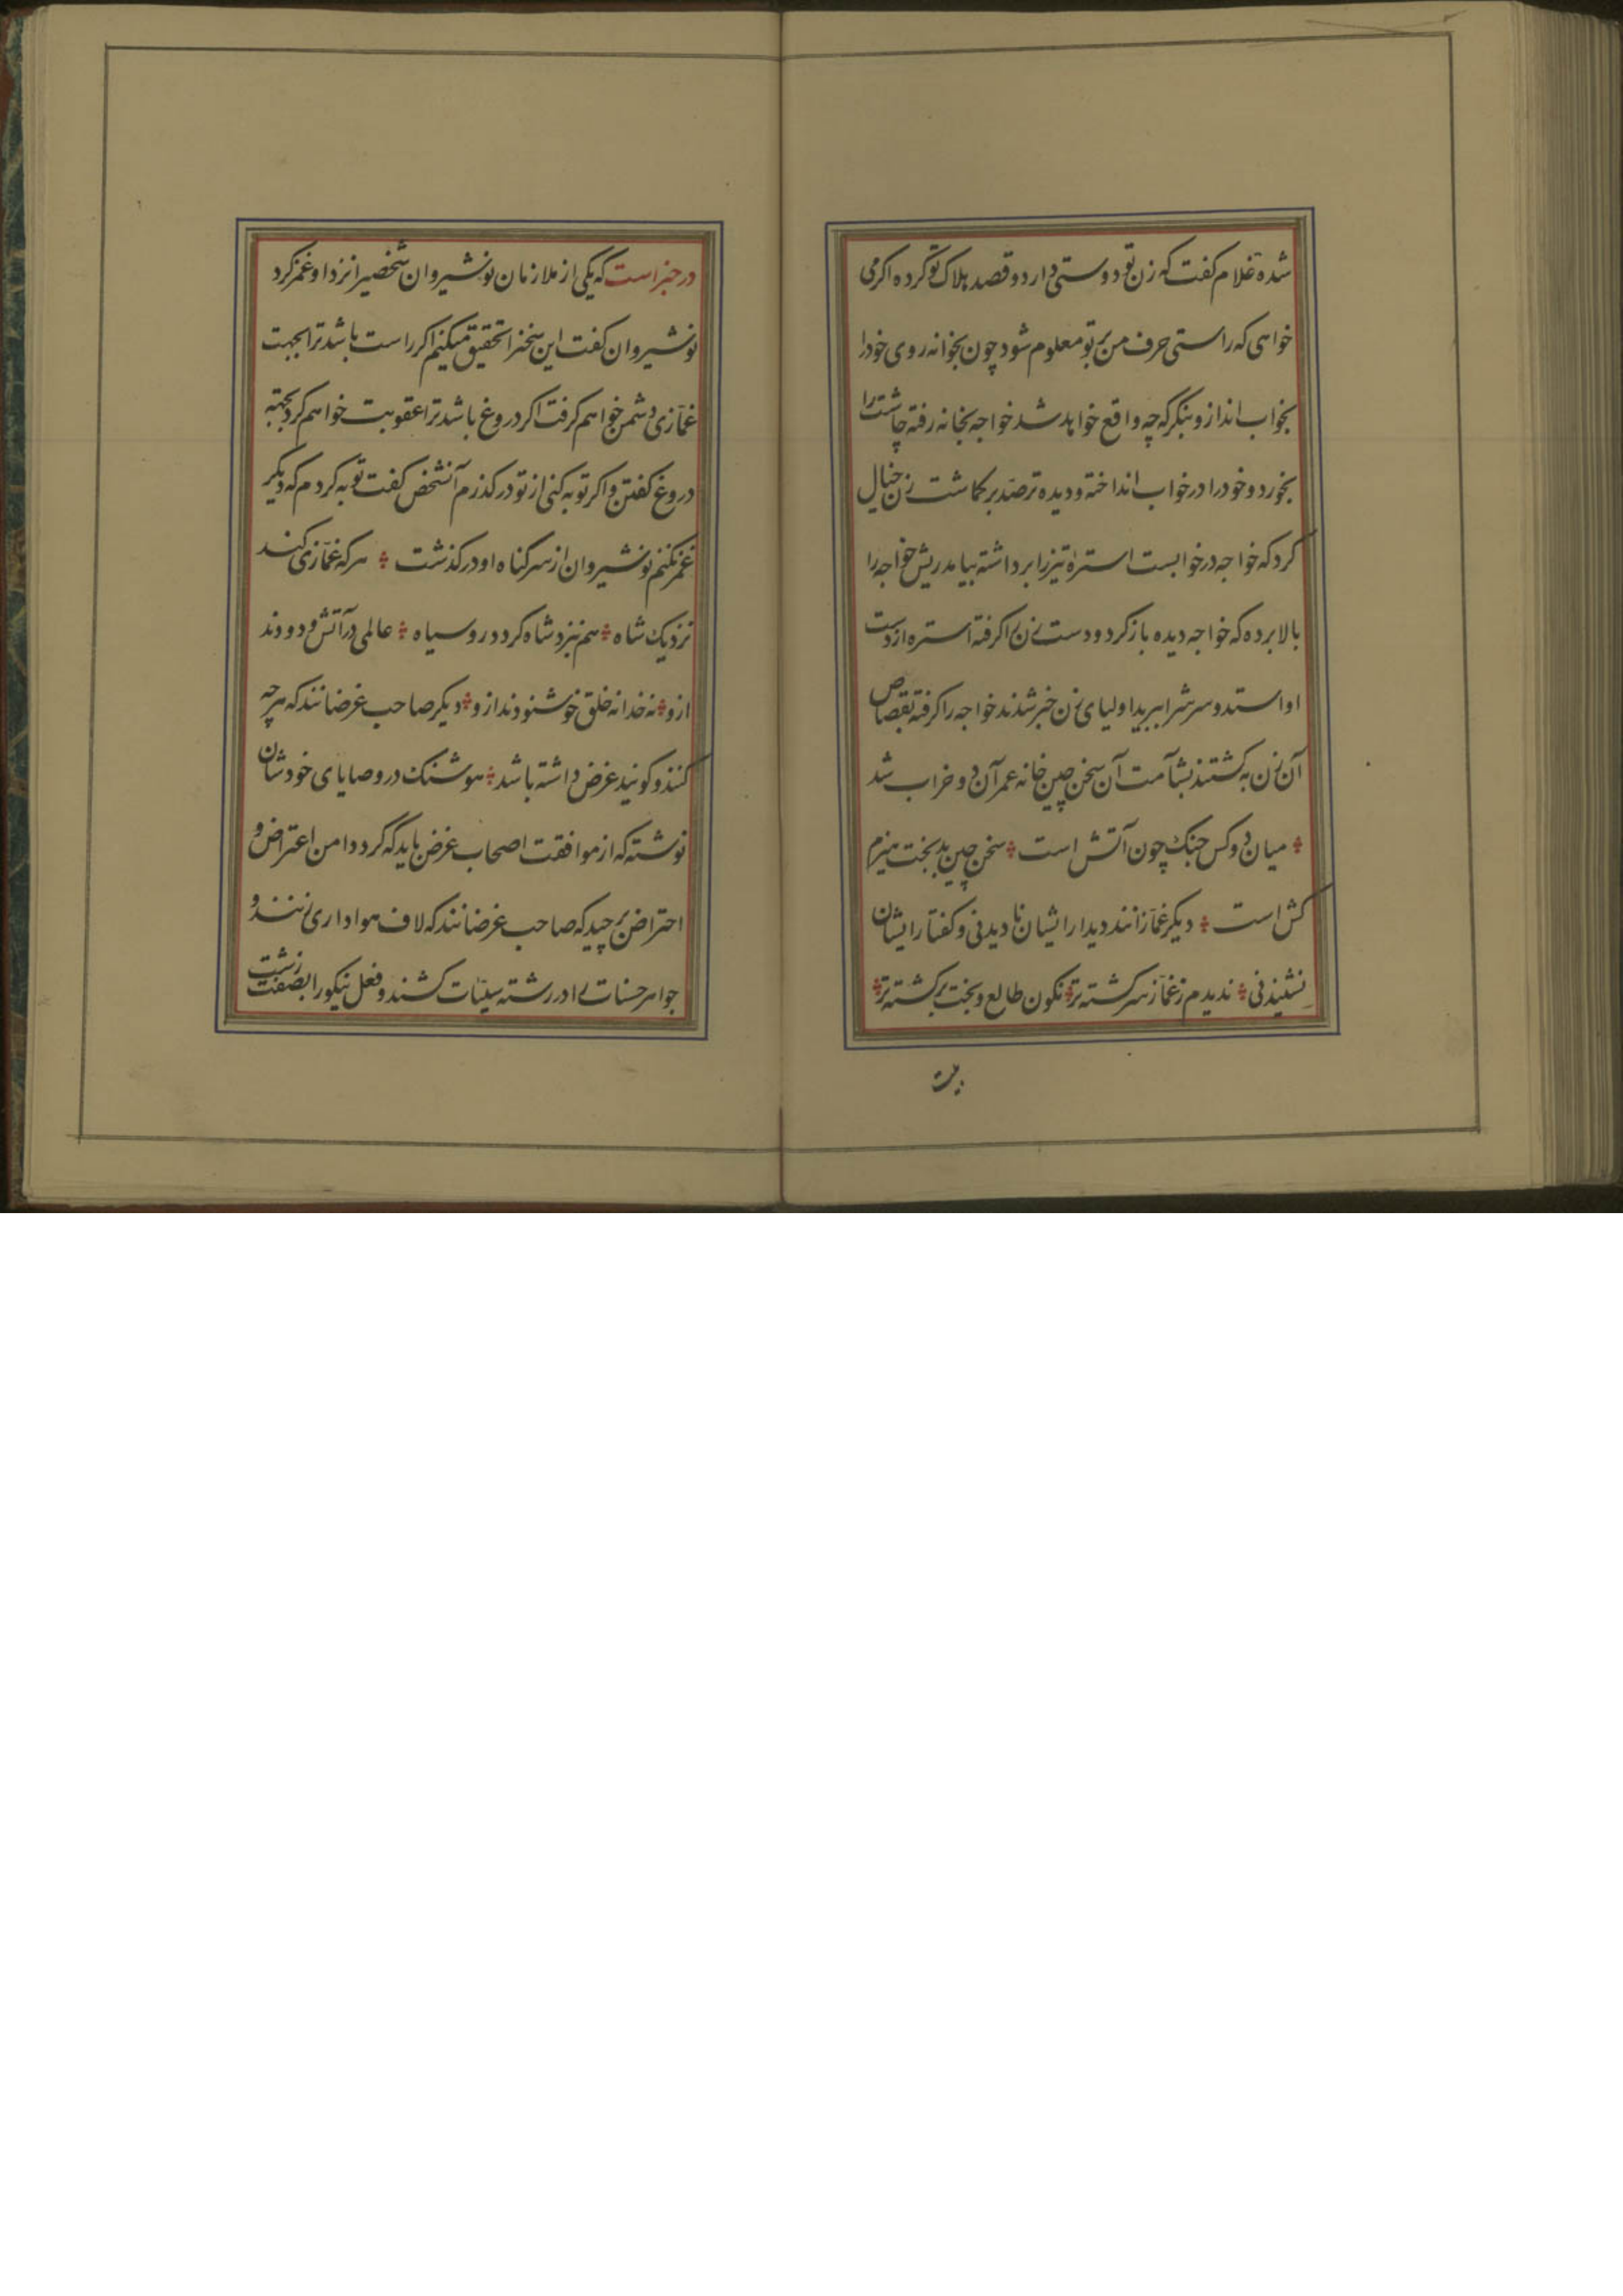 شده غلام گفت که زن تو دوستی دارد و قصد هلاک تو کرده اگر می
خواهی که راستی حرف من بر تو معلوم شود چون بخوانه روی خود را
بخواب انداز و بنگر که چه واقع خواهد شد خواجه بخانه رفته چاشت را
بخورد و خود را در خواب انداخته و دیده ترصد برکماشت زن خیال
کرد که خواجه در خوابست استره تیز را برداشته بیامد ریش خواجه را
بالا برده که خواجه دیده باز کرد و دست زن را کرفته استره از دست
او استد و سرش را ببرید اولیای زن خبر شدند خواجه را کرفته بقصاص
آن زن بکشتند بشآمت آن سخن چین خانه عمر آن دو خراب شد
میان دو کس جنک چون آتش است سخن چین بدبخت هیزم
کش است دیکر غمّازانند دیدار ایشان نا دیدنی و کفتار ایشان
نشنیدنی ندیدم ز غمّاز سرکشته تر نکون طالع و بخت برکشته تر
بیت
در خبر است که یکی از ملازمان نوشیروان شخصیرا نزد او غمز کرد
نوشیروان کفت این سخنرا تحقیق میکنم اکر راست باشد ترا بجهت
غمّازی دشمن خواهم کرفت اکر دروغ باشد ترا عقوبت خواهم کرد بجهته
دروغ کفتن و اکر توبه کنی از تو درکذرم آنشخص کفت توبه کردم که دیکر
غمز نکنم نوشیروان از سر کناه او درکذشت هر که غمّازی کند
نزدیک شاه هم نزد شاه کردد روسیاه عالمی در آتش و دودند
ازو نه خدا نه خلق خوشنودند ازو دیکر صاحب غرضانند که هر چه
کنند و کویند غرض داشته باشد هوشنک در وصایای خودشان
نوشته که از موافقت اصحاب غرض باید که کرد دامن اعتراض و
احتراض برچید که صاحب غرضانند که لاف هواداری زنند و
جواهر حسنات را در رشته سیئات کشند و فعل نیکو را بصفت زشت